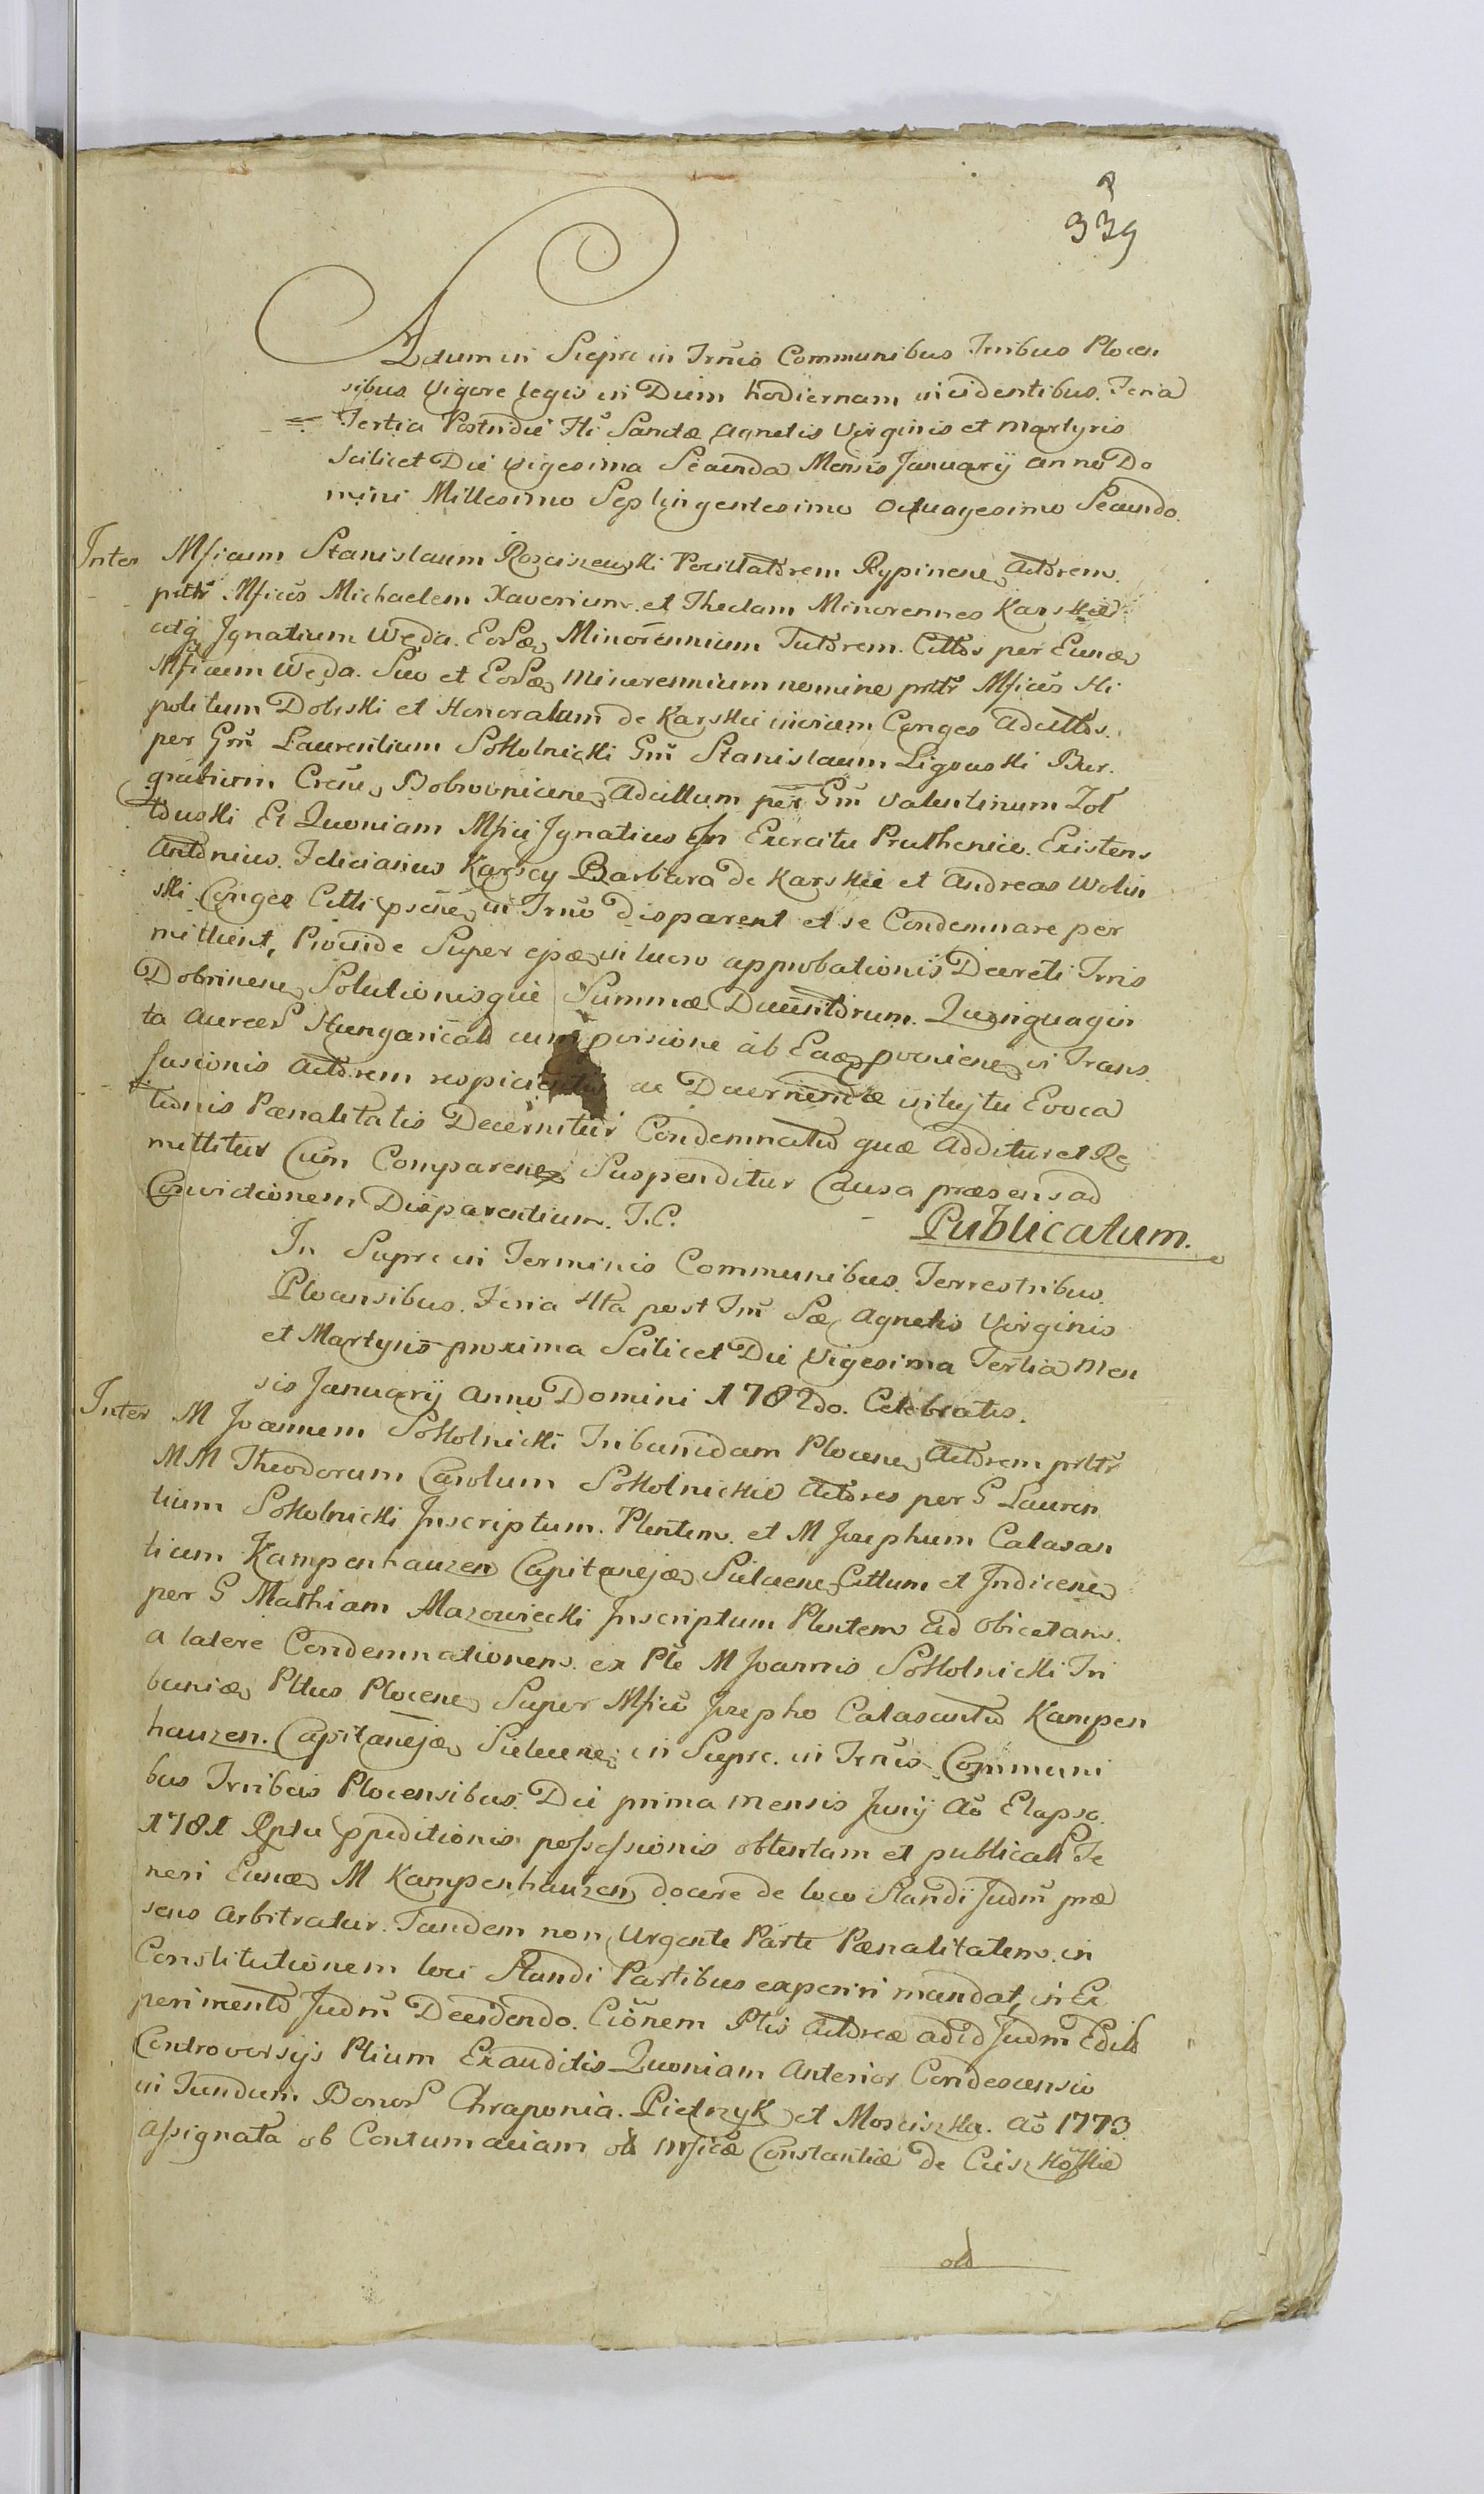 339
Actum in Sieprc in Trnis Communibus Trribus Plocen
sibus Vigore legis in Diem hodiernam incidentibus. Feria
Tertia Postridie Fti Sanctæ Agnetis Virginis et Martyris
Scilicet Die Vigesima Secunda Mensis January anno Do
mini Millesimo Septingentesimo octuagesimo Secundo.
Inter Mficum Stanislaum Rosciszewski Pocillatorem Rypinens Actorem
pntr Mficos Michaelem Xaverium et Theclam Minorennes Karskie
atq Ignatium Węda. Eor Minorennium Tutorem. Cittos per Eund
Mficum Węda. Suo et Eor minorennium nomine pntr Mficos Hi
politum Doliski et Honoratam de Karskie invicem Conges Adcittos
per Gm Laurentium Sokolnicki Gm Stanislaum Ligowski Bur
grabium Crens Bobrownicens Adcittum per Gm Valentinum Zol
towski Et Quoniam Mfici Ignatius In Exercitu Pruthenico Existens
Antonius. Felicianus Karscy Barbara de Karskie et Andreas Wolin
ski Conges Citti psens in Trno disparent et se Condemnare per
mittent, Proinde Super ejs in lucro approbationis Decreti Trris
Dobrinens Solutionisque Summæ Ducentorum. Quinquagin
ta aureor Hungarical cum provisione ab Ead provenien vi Trans
fusionis Actorem respicientis ac Decernendæ intuitu Evoca
tionis Pœnalitatis Decernitur Condemnatio quæ Additur et Re
mittitur Cum Comparen Suspenditur Causa præsens ad
Convictionem Disparentium. T.C. Publicatum.
In Sieprc in Terminis Communibus Terrestribus
Plocensibus. Feria 4ta post Fm Sæ Agnetis Virginis
et Martyris proxima Scilicet Die Vigesima Tertia Men
sis January Anno Domini 1782do. Celebratis.
Inter M Joannem Sokolnicki Tribunidam Plocens Actorem pntr
MM Theodorum Carolum Sokolnickie Actores per G Lauren
tium Sokolnicki Inscriptum. Plentem et M Josephum Calasan
tium Kampenhauzen Capitanejd Sieluens Cittum et Indicens
per G Mathiam Mazowiecki Inscriptum Plentem ad obictam
a latere Condemnationem ex Ple M Joannis Sokolnicki Tri
bunid Pttus Plocens Super Mfico Josepho Calasantio Kampen
hauzen. Capitanejd Sieluens in Sieprc. in Trnis Communi
bus Trribus Plocensibus. Die prima mensis Juny Ao Elapso
1781 Rptu Expeditionis possessionis obtentam et publicat Te
neri Eund M Kampenhauzen docere de loco Standi Judm præ
sens arbitratur. Tandem non Urgente Parte Pœnalitatem in
Constitutionem loci Standi Partibus experiri mandat, in Ex
perimento Judm Decidendo. Cionem Ptis Actoreæ ad id Judm Edit
Controversijs Ptium Exauditis Quoniam Anterior Condescensio
in Fundum Bonor Chraponia. Pietrzyk et Mosciska. Ao 1773
assignata ob Contumaciam olt Mficæ Constantiæ de Cieszkoskie
olt